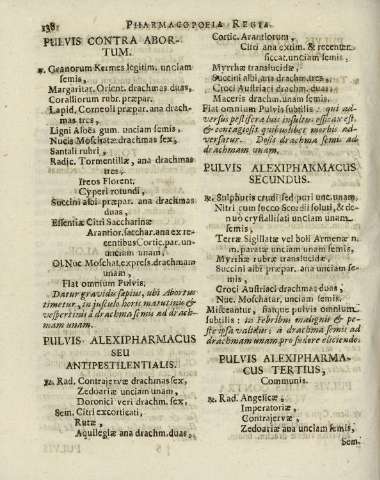 138 PHARMACOPOEIA REGIA
PULVIS CONTRA ABOR-
TUM.
℞. Granorum Kermes legitim. unciam
semis,
Margaritat. Orient. drachmas duas,
Coralliorum rubr. præpar.
Lapid, Corneoli præpar. ana drach-
mas tres,
Ligni Aloës gum. unciam semis,
Nucis Moschatæ drachmas sex,
Santali rubri,
Radic. Tormentillæ, ana drachmas
tres,
Ireos Florent.
Cyperi rotundi,
Succini albi præpar. ana drachmas
duas,
Essentiæ Citri Saccharinæ
Arantior. sacchar. ana ex re-
centibus Cortic. par. un-
unciam unam,
Ol. Nuc Moschat. expreß. drachmam
unam,
Fiat omnium Pulvis.
Datur gravidis sæpius, ubi Abortus
timetur, in jusculo horis matutinis &
vespertinis à drachma semis ad drach-
mam unam.
PULVIS ALEXIPHARMACUS
SEU
ANTIPESTILENTIALIS.
℞. Rad. Contrajervæ drachmas sex,
Zedoariæ unciam unam,
Doronici veri drachm. sex,
Sem. Citri excorticati,
Rutæ,
Aquilegiæ ana drachm. duas,
Cortic. Arantiorum,
Citri ana extim. & recenter
siccat. unciam semis,
Myrrhæ translucidæ,
Succini albi, ana drachm. tres,
Croci Austriaci drachm. duas,
Maceris drachm. unam semis.
Fiat omnium Pulvis subtilis. qui ad-
versus pestiferæ luis insultus efficax est,
& contagiosis quibuslibet morbis ad-
versatur. Dosis drachma semis ad
drachmam unam.
PULVIS ALEXIPHARMACUS
SECUNDUS.
℞. Sulphuris crudi sed puri unc. unam.
Nitri cum succo Scordii soluti, & de-
nuò crystallisati unciam unam
semis,
Terræ Sigillatæ vel boli Armenæ n.
m. paratæ unciam unam semis,
Myrrhæ rubræ translucidæ,
Succini albi præpar. ana unciam se-
mis,
Croci Austriaci drachmas duas,
Nuc. Moschatar. unciam semis.
Misceantur, fiatque pulvis omnium
subtilis: in Febribus malignis & pe-
ste ipsa validus; à drachma semis ad
drachmam unam pro sudore eliciendo.
PULVIS ALEXIPHARMA-
CUS TERTIUS,
Communis.
℞. Rad. Angelicæ,
Imperatoriæ,
Contrajervæ,
Zedoariæ ana unciam semis,
bem.